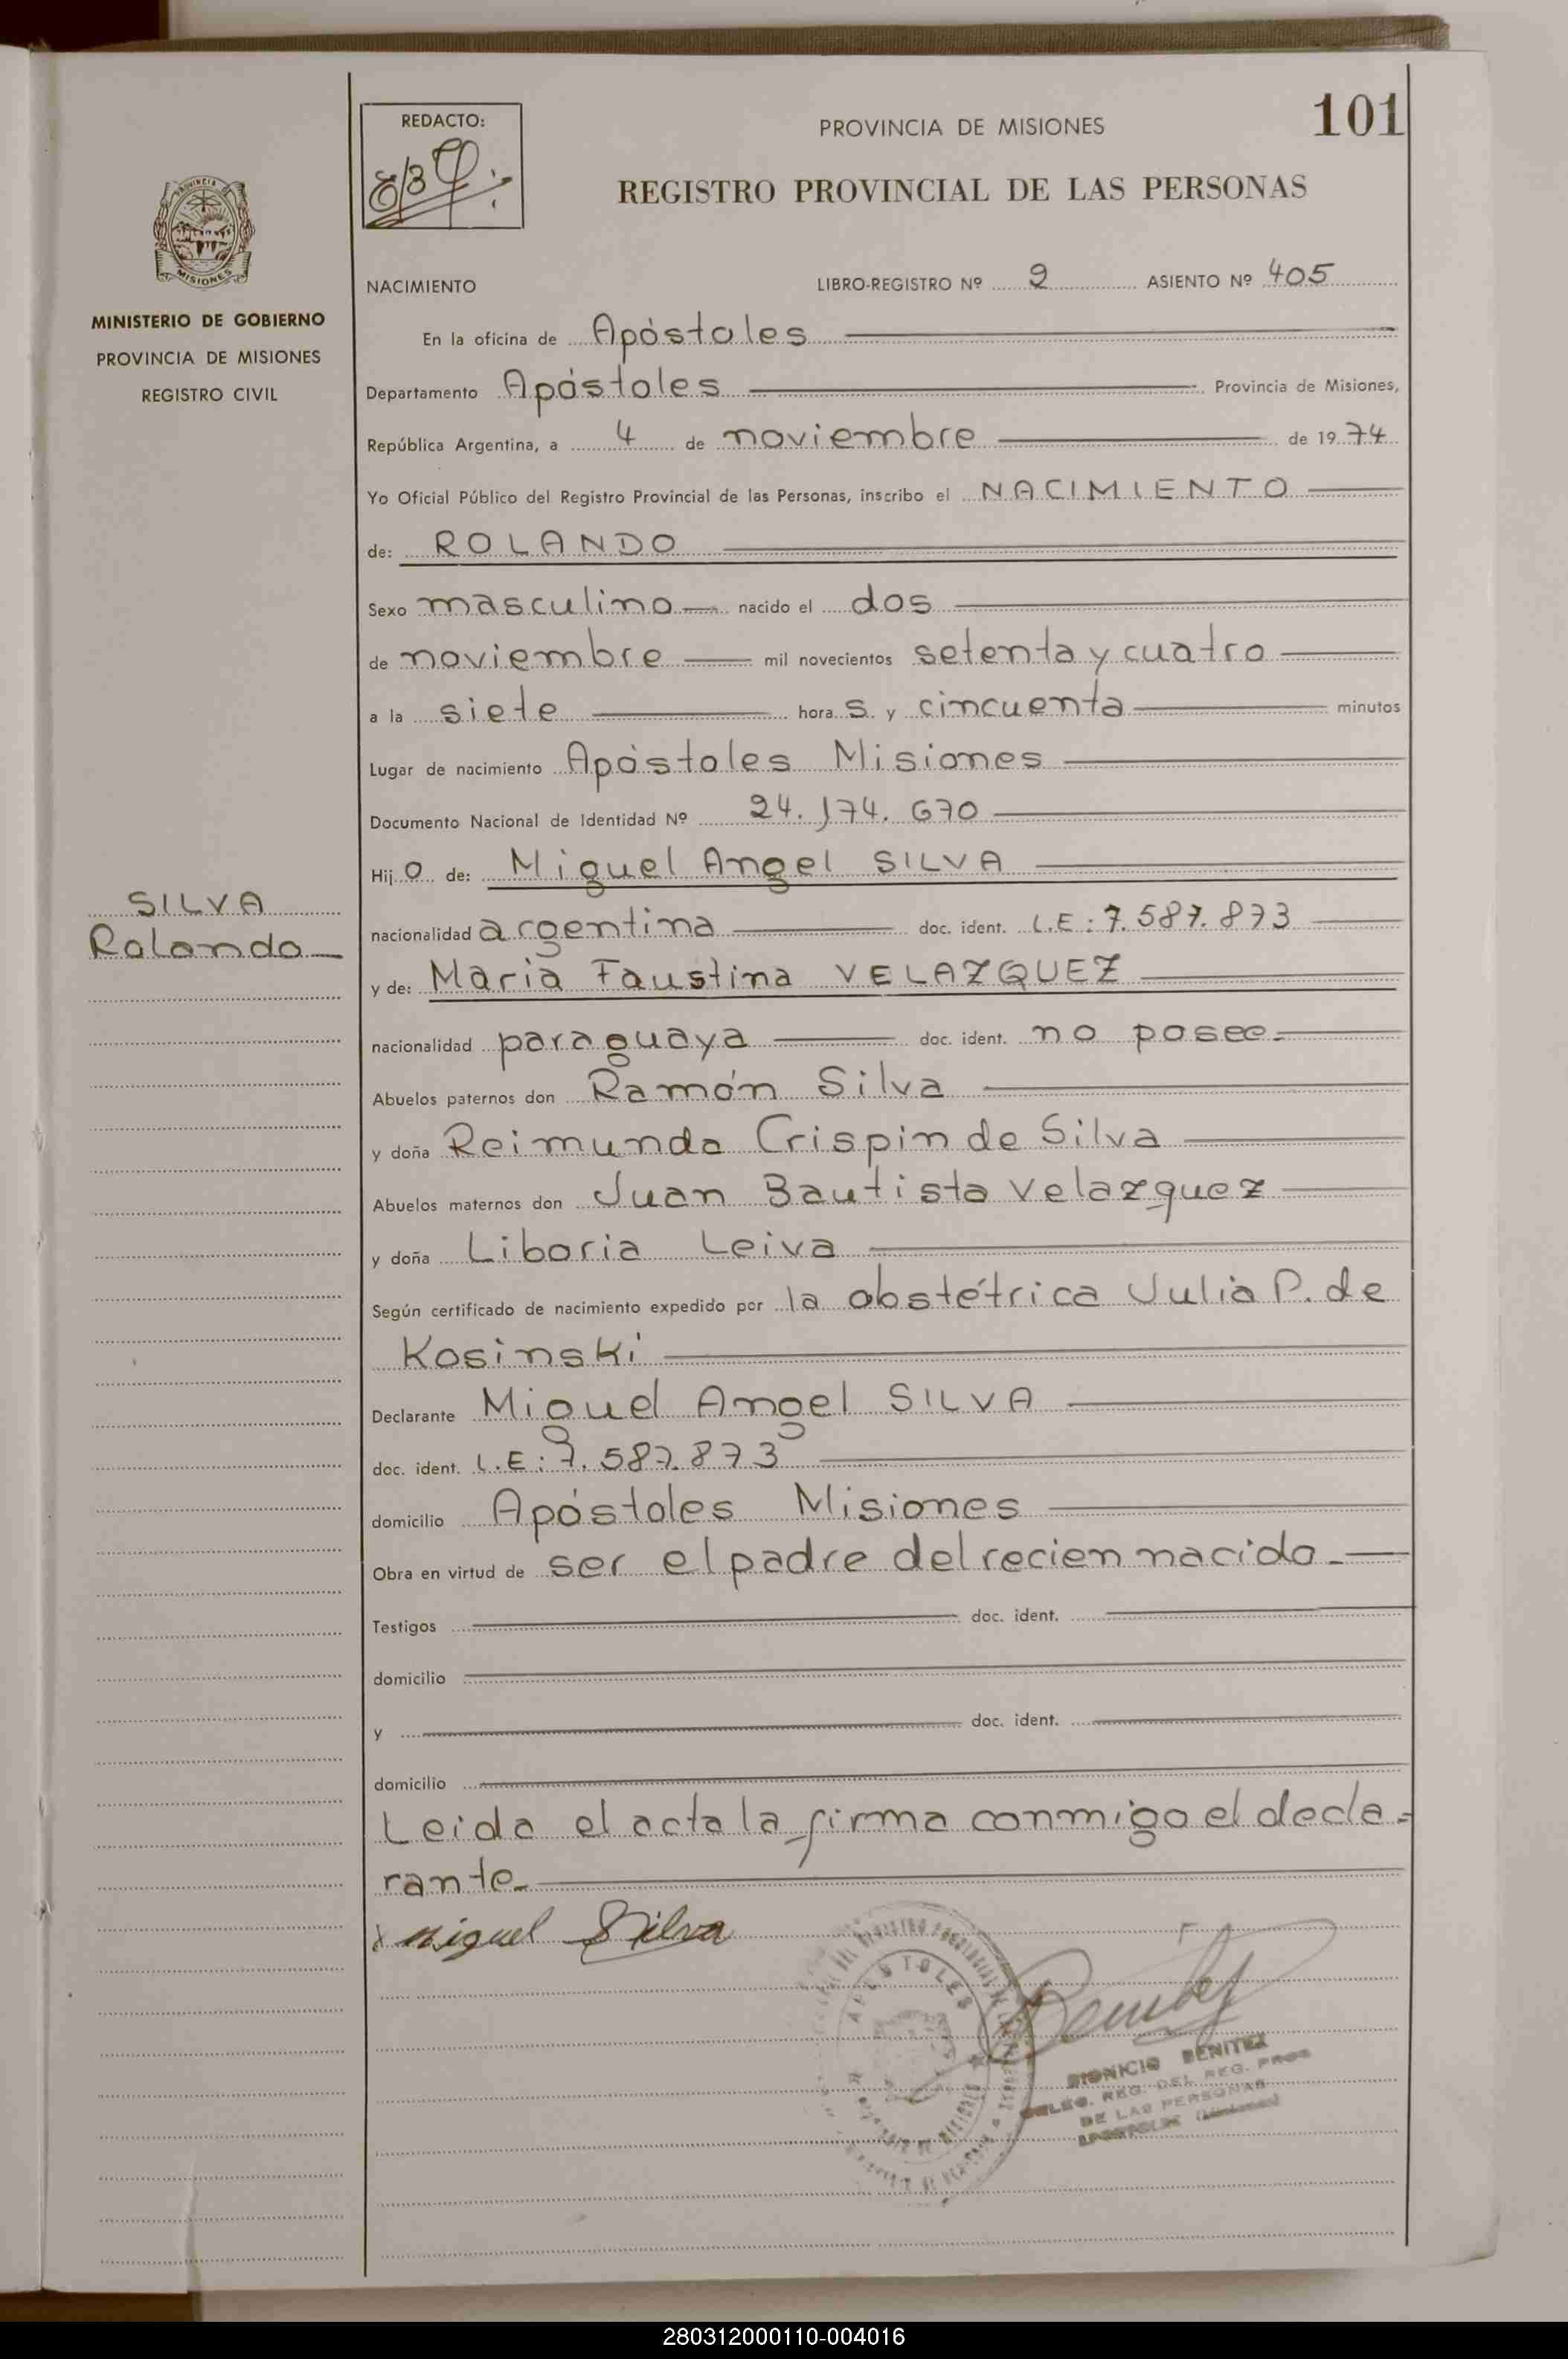 101
REDACTO:
PROVINCIA DE MISIONES
REGISTRO PROVINCIAL DE LAS PERSONAS
MISIONES
MINISTERIO DE GOBIERNO
PROVINCIA DE MISIONES
REGISTRO CIVIL
NACIMIENTO LIBRO-REGISTRO Nº 2 ASIENTO Nº 405
En la oficina de Apóstoles
Departamento Apóstoles Provincia de Misiones,
República Argentina, a 4 de noviembre de 1974
Yo Oficial Público del Registro Provincial de las Personas, inscribo el NACIMIENTO
de: ROLANDO
Sexo masculino nacido el dos
de noviembre mil novecientos setenta y cuatro
a la siete hora s y cincuenta minutos
Lugar de nacimiento Apóstoles Misiones
Documento Nacional de Identidad Nº 24.174.670
Hij o de: Miguel Angel SILVA
SILVA
Rolando
nacionalidad argentina doc. ident. L.E: 7.587.873
y de: Maria Faustina VELAZQUEZ
nacionalidad paraguaya doc. ident. no posee.
Abuelos paternos don Ramón Silva
y doña Reimunda Crispin de Silva
Abuelos maternos don Juan Bautista Velazquez
y doña Liboria Leiva
Según certificado de nacimiento expedido por la obstétrica Julia P. de
Kosinski
Declarante Miguel Angel SILVA
doc. ident. L.E: 7.587.873
domicilio Apóstoles Misiones
Obra en virtud de ser el padre del recien nacido.
Testigos doc. ident.
domicilio
y doc. ident.
domicilio
Leida el acta la firma conmigo el decla=
rante.
x Miguel Silva
APOSTOLES
DIONICIO BENITEZ
DELEG. REG. DEL REG. PROV
DE LAS PERSONAS
APOSTOLES (Misiones)
280312000110-004016